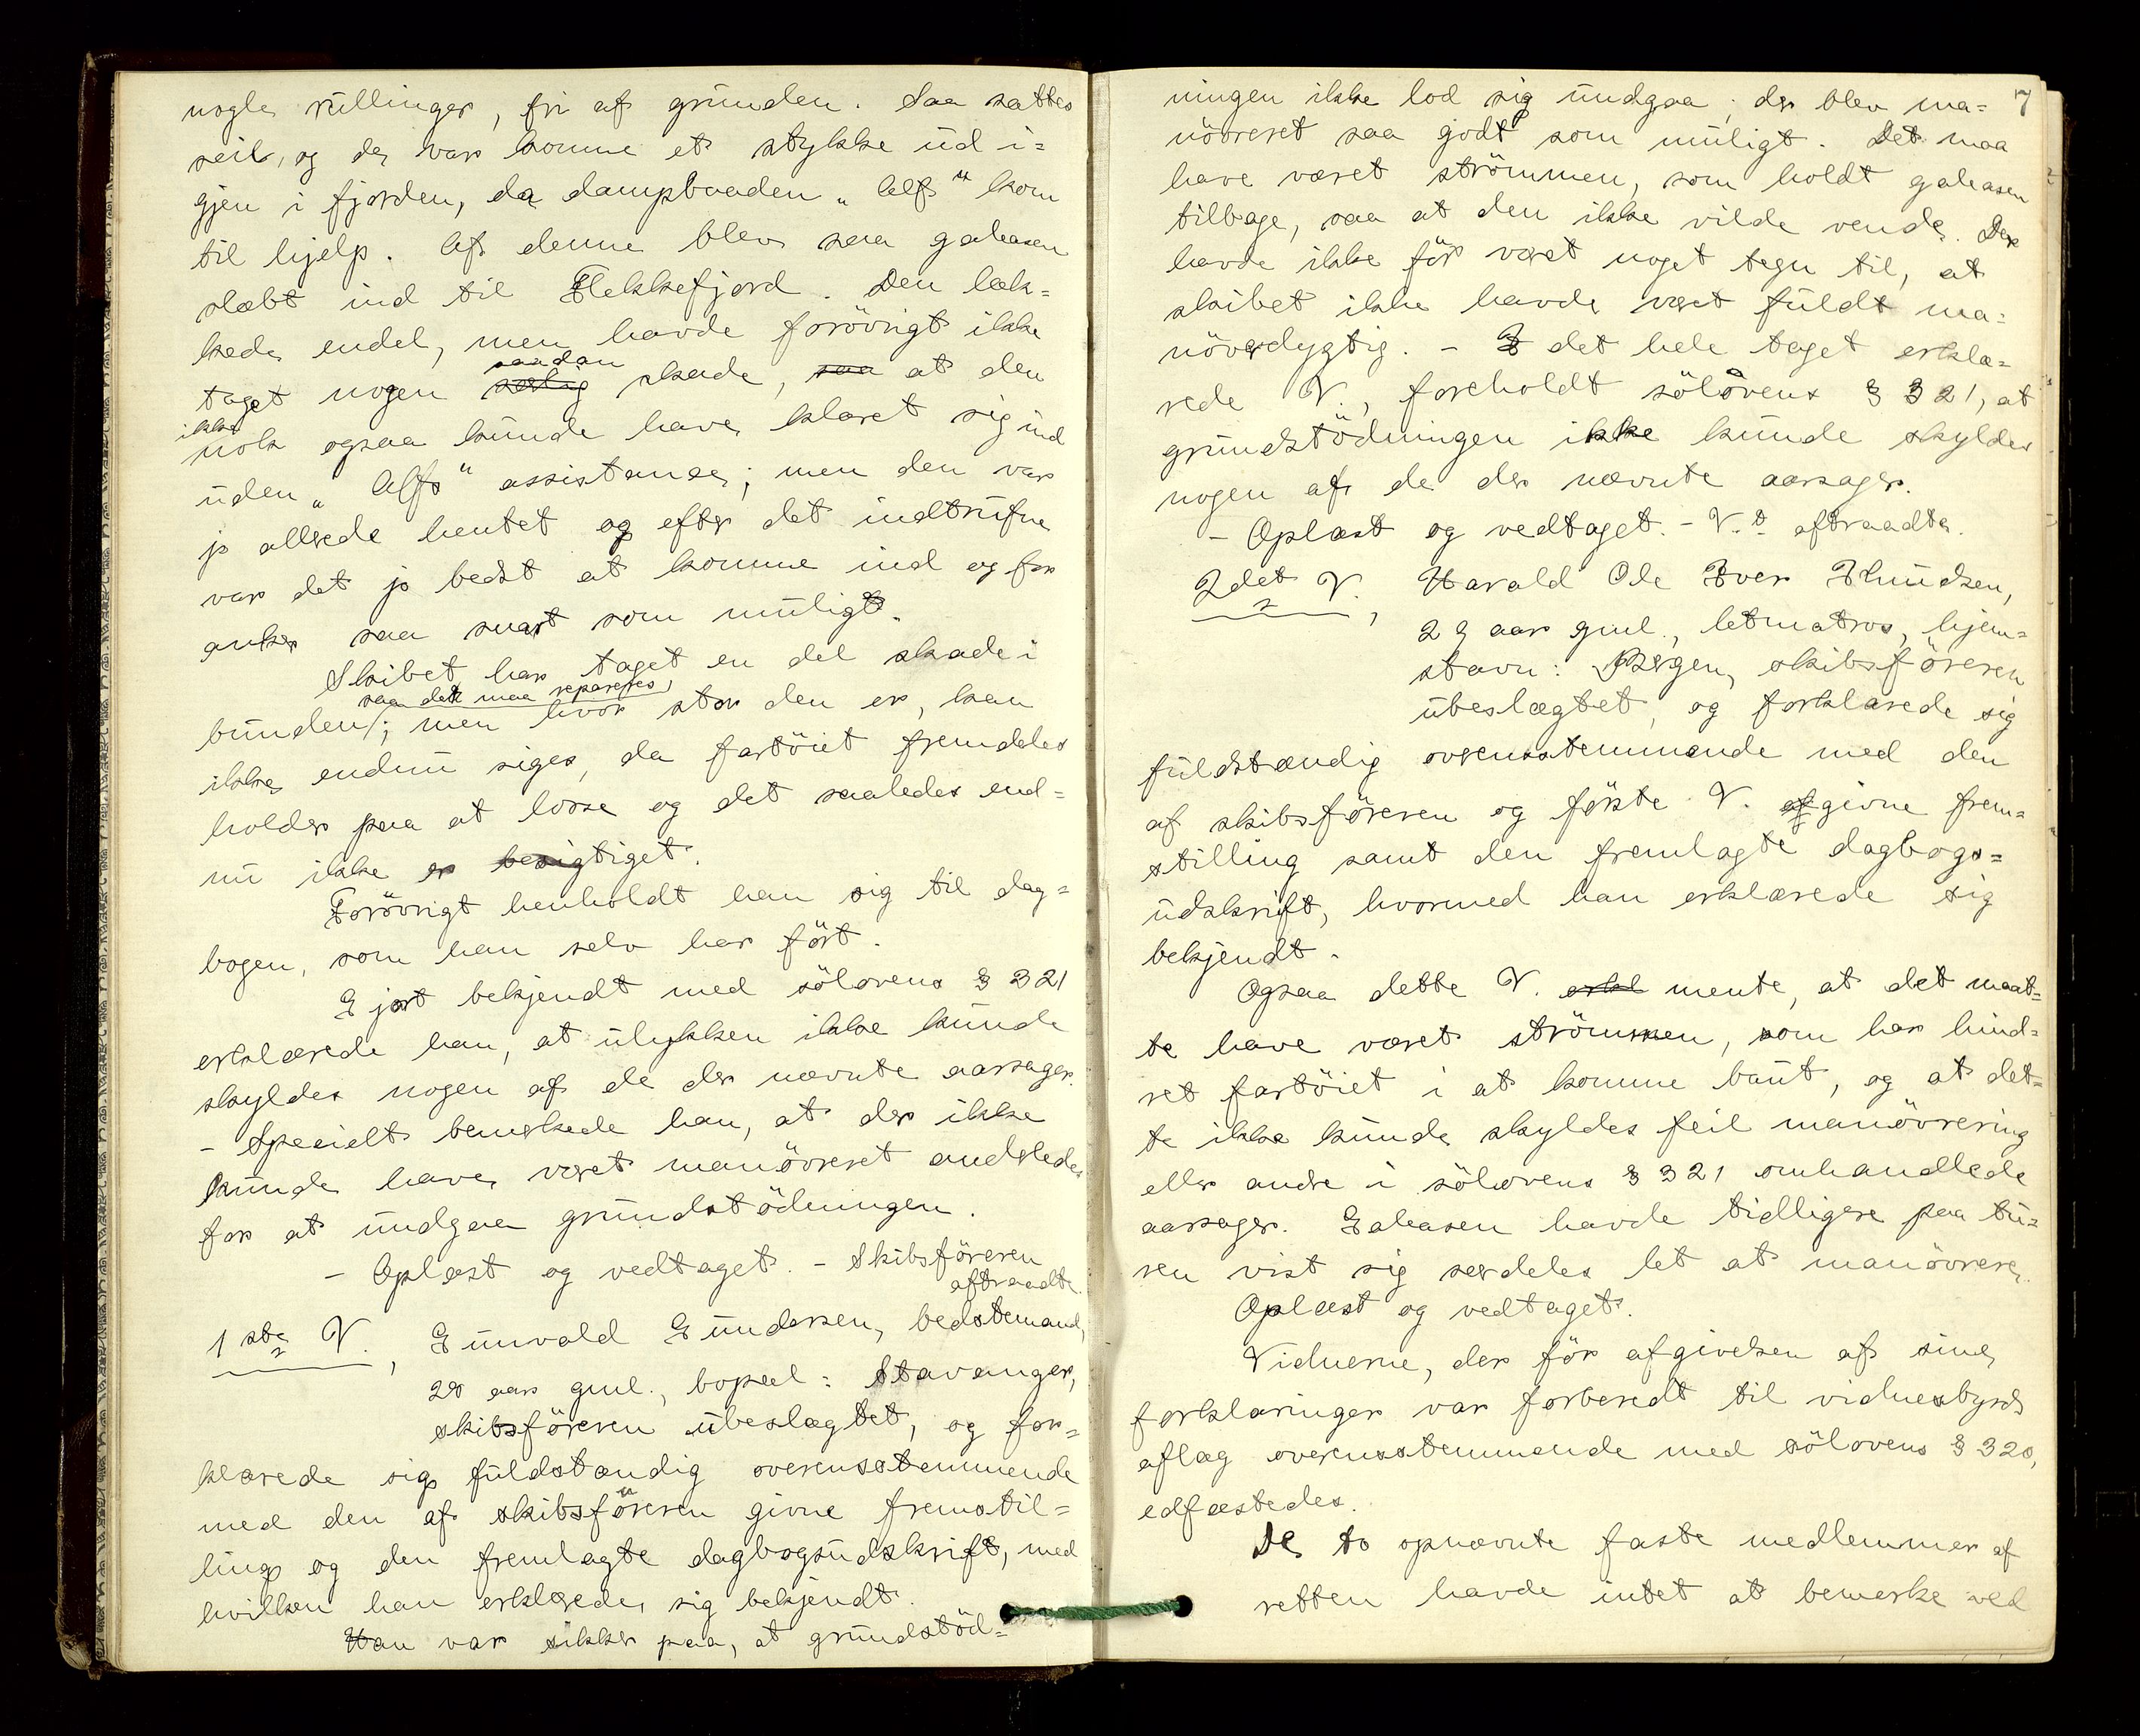 nogle rullinger, fri af grunden. Saa sattes
seil, og de var komne et stykke ud i=
gjen i fjorden, da dampbaaden „Alf“ kom
til hjelp. Af denne blev saa galeasen
slæbt ind til Flekkefjord. Den læk=
kede endel, men havde forövrigt ikke
saadan
taget nogen særlig skade, saa at den
ikke
nok ogsaa kunde have klaret sig ind
uden „Alfs“ assistance; men den var
jo allerede hentet og efter det indtrufne
var det jo bedst at komme ind og for
anker saa snart som muligt.
Skibet har taget en del skade i
saa det maa repareres,
bunden/; men hvor stor den er, kan
ikke endnu siges, da fartöiet fremdeles
holder paa at losse og det saaledes end=
nu ikke er besigtiget.
Forövrigt henholdt han sig til dag=
bogen, som han selv har fört.
Gjort bekjendt med sölovens § 321
erklærede han, at ulykken ikke kunde
skyldes nogen af de der nævnte aarsager.
- Specielt bemerkede han, at der ikke
kunde have været manövreret anderledes
for at undgaa grundstödningen.
- Oplæst og vedtaget. - Skibsföreren
aftraadte.
1ste V., Gunvald Gundersen, bedstemand,
28 aar gml., bopæl: Stavanger,
skibsföreren ubeslægtet, og for=
klarede sig fuldstændig overensstemmende
med den af skibsföreren givne fremstil=
ling og den fremlagte dagbogsudskrift, med
hvilken han erklærede sig bekjendt.
Han var sikker paa, at grundstöd=
7
ningen ikke lod sig undgaa; der blev ma=
növreret saa godt som muligt. Det maa
have været strömmen, som holdt galeasen
tilbage, saa at den ikke vilde vende. Der
havde ikke för været noget tegn til, at
skibet ikke havde været fuldt ma=
növredygtig. - I det hele taget erklæ=
rede V., foreholdt sölovens § 321, at
grundstödningen ikke kunde skyldes
nogen af de der nævnte aarsager.
- Oplæst og vedtaget. - V.t aftraadte.
2det V., Harald Ole Iver Knudsen,
29 aar gml., letmatros, hjem=
stavn: Bergen, skibsföreren
ubeslægtet, og forklarede sig
fuldstændig overensstemmende med den
af skibsföreren og förste V. afgivne frem=
stilling samt den fremlagte dagbogs=
udskrift, hvormed han erklærede sig
bekjendt.
Ogsaa dette V. erkl mente, at det maat=
te have været strömmen, som har hind=
ret fartöiet i at komme baut, og at det=
te ikke kunde skyldes feil manövrering
eller andre i sölovens § 321 omhandlede
aarsager. Galeasen havde tidligere paa tu=
ren vist sig særdeles let at manövrere.
Oplæst og vedtaget.
Vidnerne, der för afgivelsen af sine
forklaringer var forberedt til vidnesbyrds
aflæg overensstemmende med sölovens § 320,
edfæstedes.
De to opnævnte faste medlemmer af
retten havde intet at bemerke ved